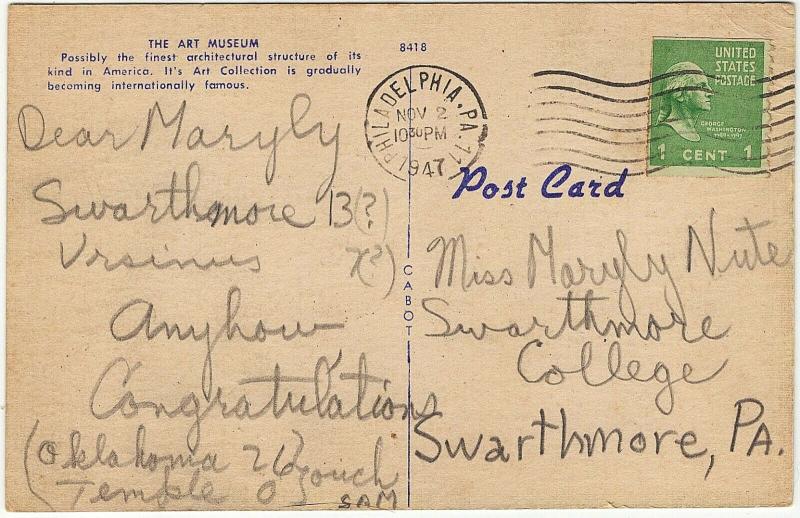 THE ART MUSEUM
Possibly the finest architectural structure of its
kind in America. It's Art Collection is gradually
becoming internationally famous.
8418
PHILADELPHIA, PA. 11
NOV 2
10 30 PM
1947
UNITED
STATES
POSTAGE
GEORGE
WASHINGTON
1789-1797
1 CENT 1
Post Card
CABOT
Dear Maryly
Swarthmore 13(?)
Ursinus 7(?)
Anyhow
Congratulations
(Oklahoma 26
Temple 0 } ouch
SAM
Miss Maryly Nute
Swarthmore
College
Swarthmore, PA.